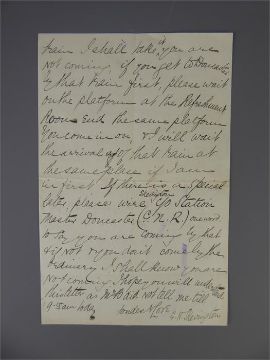 train I shall take it, you are
not coming, if you get to Doncaster
by that train first, please wait
on the platform at the Refreshment
Room End the same platform
you come in on, & I will wait
the arrival of that train at
the same place if I am
in first. If there is a special
Sleaford
later, please wire c/o Station
Master Doncaster (G.N.R.) one word
to say you are coming by that
& if not & you don't come by the
ordinary I shall know you are
not coming. I hope you will understand
this letter as Mr did not tell me till
9-5 am today
Fondest Love